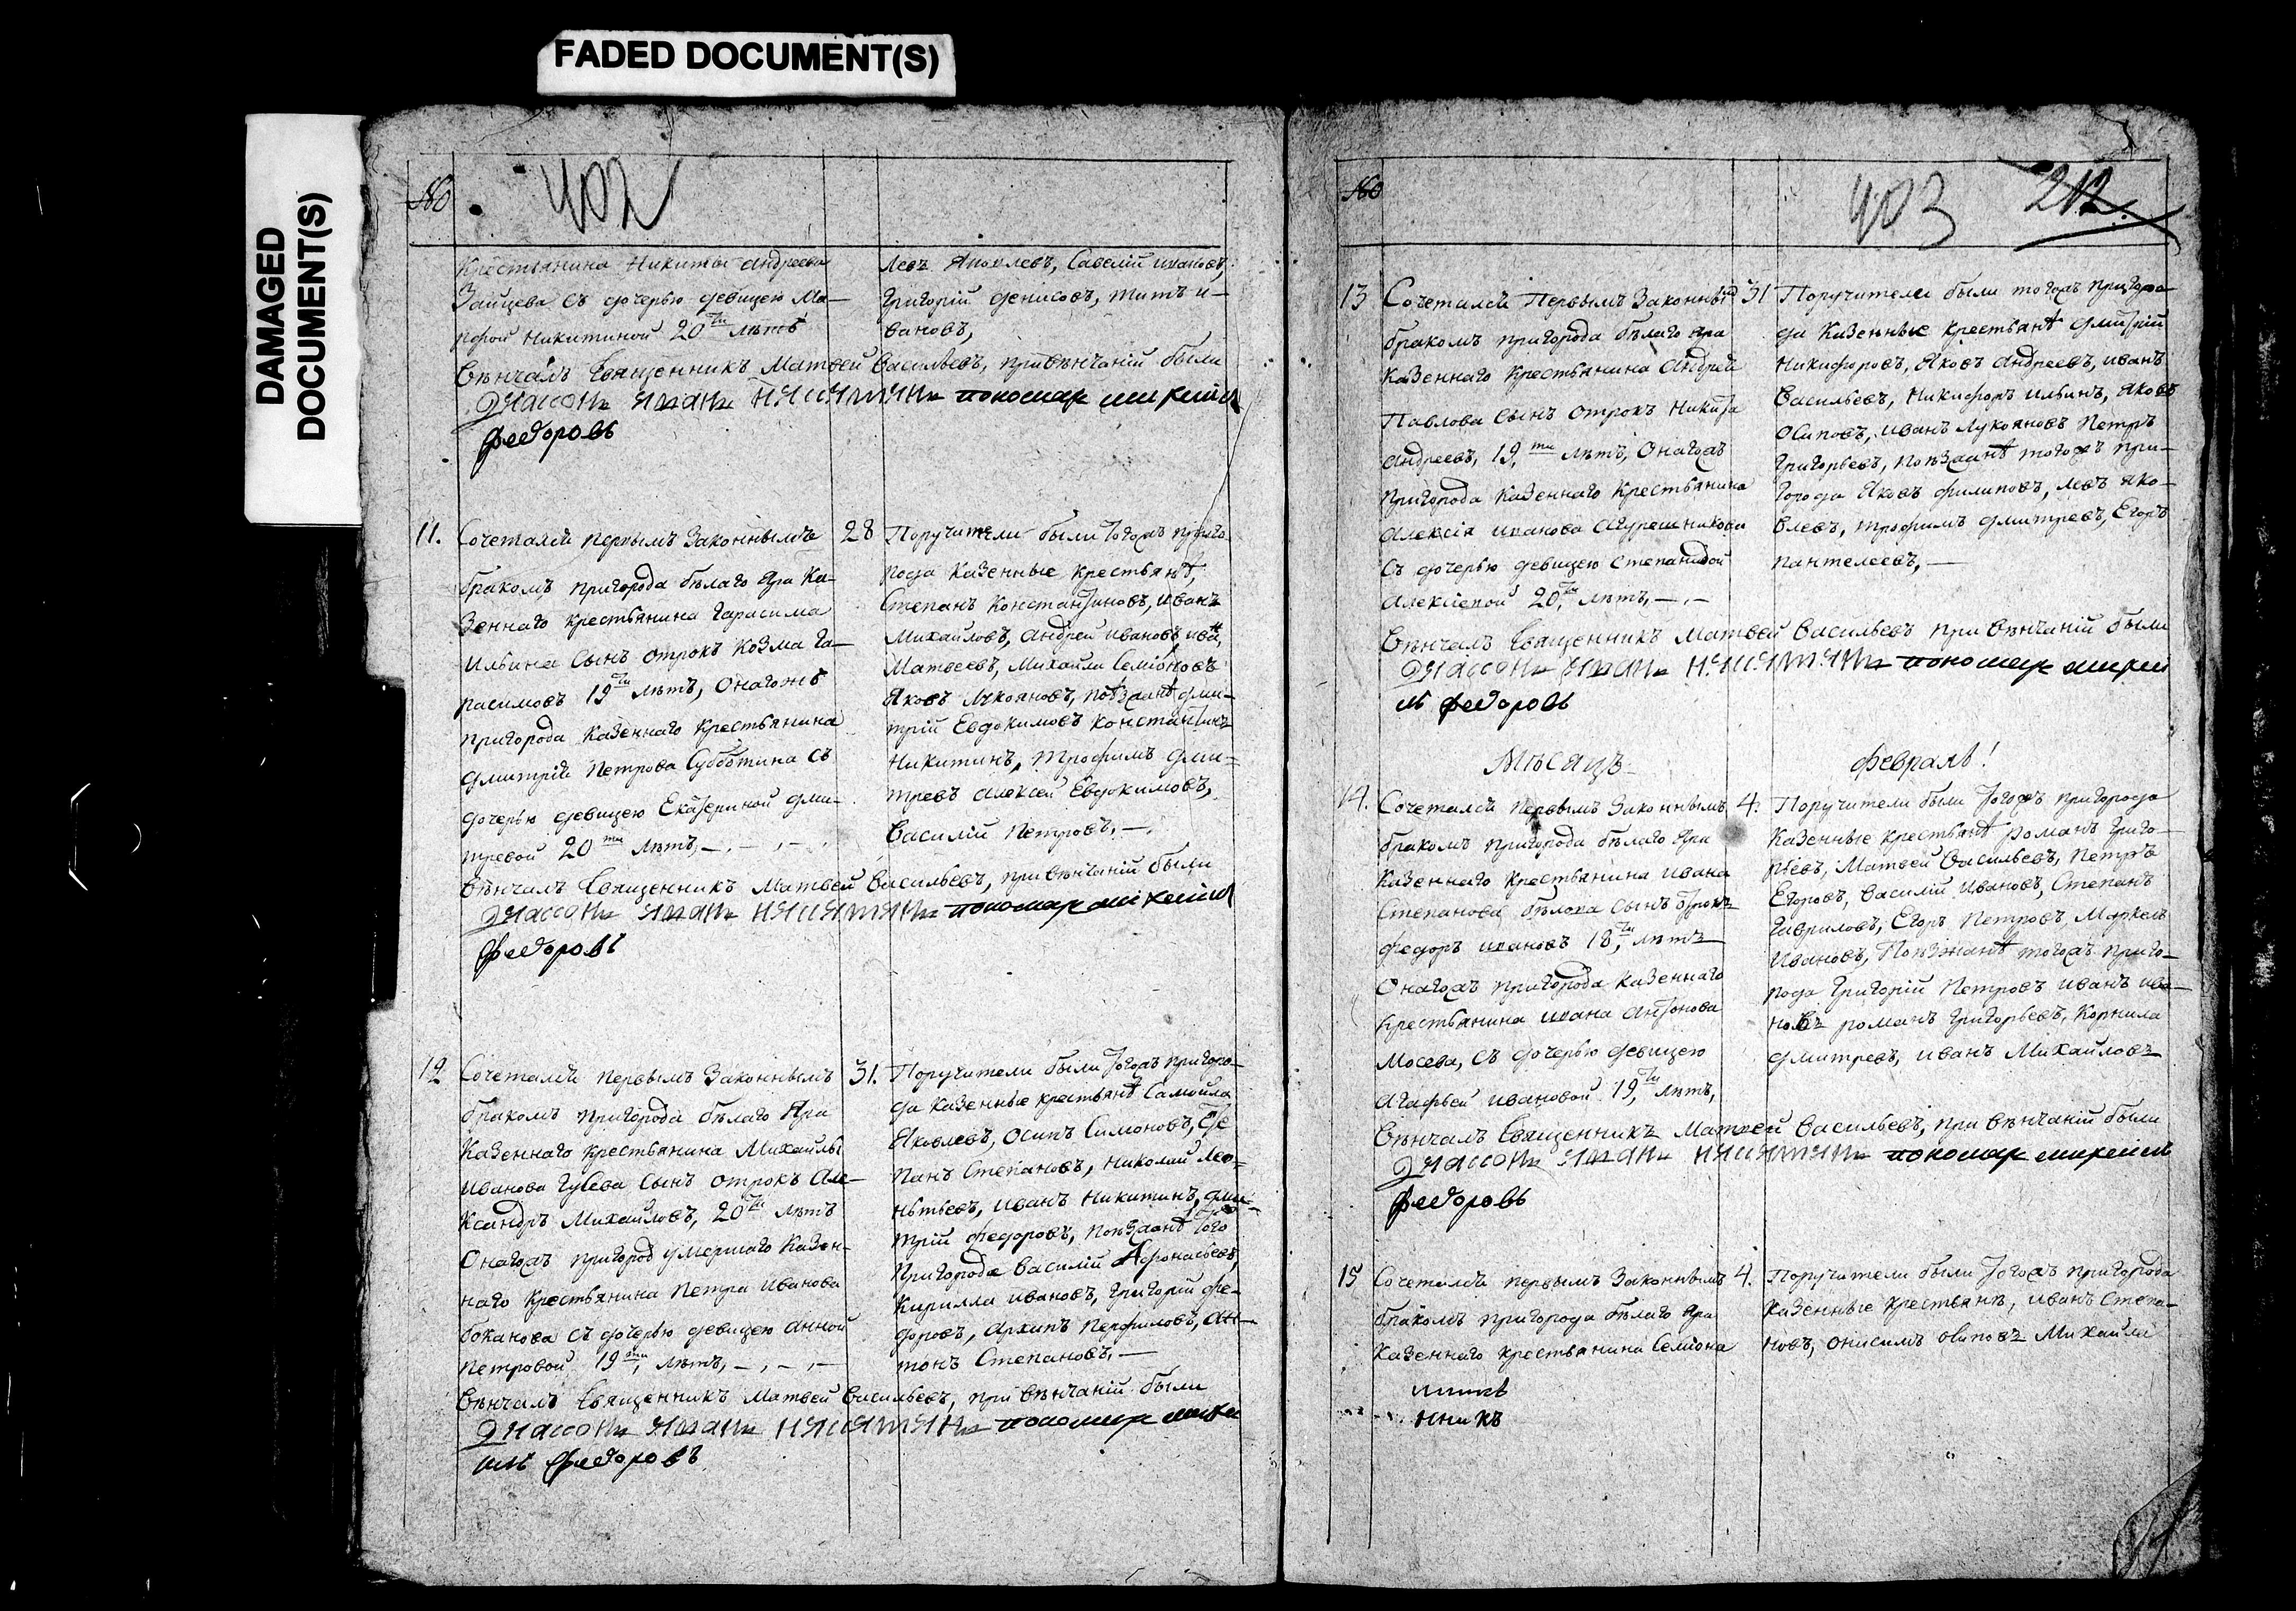 FADED DOCUMENT(S)
DAMAGED
DOCUMENT(S)
№
402
Крестьянина Никиты Андреева
Зайцева съ дочерью девицею Ма—
Никитиной 20ти лѣтъ
левъ Яковлевъ, Савелій Ивановъ,
Григорій Денисовъ, Титъ И—
вановъ,
Вѣнчалъ Священникъ Матвей Васильевъ, при вѣнчаніи были
пономар
федоровъ
11.
Сочетался первымъ Законнымъ
бракомъ пригорода бѣлаго Яра Ка-
зеннаго крестьянина Гарасима
Ильина сынъ отрокъ Козма Га—
расимовъ 19ти лѣтъ, Онагожъ
пригорода Казеннаго Крестьянина
Дмитрія Петрова Субботина съ
дочерью девицею Екатериной Дми-
тревой 20ти лѣтъ,—
28
Поручители были тогожъ приго
рода Казенные крестьянѣ,
Степанъ Константиновъ, Иванъ
Михайловъ, Андрей Ивановъ Иванъ
Матвеевъ, Михайла Семіоновъ
Яковъ Лукояновъ, поѣзжанѣ Дми—
трій Евдокимовъ Константинъ
Никитинъ, Трофимъ Дми=
тревъ Алексей Евдокимовъ,
Василій Петровъ,—
Вѣнчалъ Священникъ Матвей Васильевъ, при вѣнчаніи были
пономар
федоровъ
12
Сочетался первымъ Законнымъ
бракомъ пригорода бѣлаго Яра
Казеннаго крестьянина Михайлы
Иванова Гусева сынъ отрокъ Але—
ксандръ Михайловъ, 20ти лѣтъ
Онагожъ пригород умершаго Казен-
наго Крестьянина Петра Иванова
боканова съ дочерью девицею Анной
Петровой 19ти, лѣтъ,—,—,—
31.
Поручители были тогожъ пригоро—
да казенные крестьянѣ Самойла
Яковлевъ, Осипъ Симоновъ, Сте
панъ Степановъ, Николай Лео=
нтьевъ, Иванъ Никитинъ, Дми-
трій Федоровъ, поѣзжанѣ того
Пригорода Василій Афонасьевъ,
Кирилла Ивановъ, Григорій Фе-
доровъ, Архипъ Перфиловъ, Ан—
тонъ Степановъ,—
Вѣнчалъ Священникъ Матвей Васильевъ, при вѣнчаніи были
пономар
федоровъ
№
403 212
13
Сочетался Первымъ Законнымъ
бракомъ пригорода бѣлаго Яра
казеннаго крестьянина Андрея
Павлова сынъ отрокъ Никита
Андреевъ, 19ти лѣтъ, Онагожъ
пригорода Казеннаго Крестьянина
Алексія Иванова
съ дочерью девицею Степанидой
Алексіевой 20ти лѣтъ,—,—
31
Поручители были тогожъ пригоро
да Казенные крестьянѣ Дмитрій
Никифоровъ, Яковъ Андреевъ, Иванъ
Васильевъ, Никифоръ Ильинъ, Яковъ
Осиповъ, Иванъ Лукояновъ Петръ
Григорьевъ, поѣзжанѣ тогожъ при—
города Яковъ Филиповъ, левъ Яко—
влевъ, Трофимъ Дмитревъ, Егоръ
Пантелеевъ,—
Вѣнчалъ Священникъ Матвей Васильевъ при вѣнчаніи были
пономар
федоровъ
Мѣсяцъ февраль!
14.
Сочетался первымъ Законнымъ
бракомъ пригорода бѣлаго Яра
Казеннаго крестьянина Ивана
Степанова бѣлова сынъ отрокъ
Федоръ Ивановъ 18ти, лѣтъ
Онагожъ пригорода Казеннаго
крестьянина Ивана Антонова
Мосева, съ дочерью девицею
Агафьей Ивановой 19ти, лѣтъ,
4.
Поручители были тогожъ пригорода
Казенные крестьянѣ Романъ Григо—
рьевъ, Матвей Васильевъ, Петръ
Егоровъ, Василій Ивановъ, Степанъ
Гавриловъ, Егоръ Петровъ Маркелъ
Ивановъ, Поѣзжанѣ тогожъ приго—
рода Григорій Петровъ Иванъ Ива—
новъ Романъ Григорьевъ, Корнила
Дмитревъ, Иванъ Михайловъ
Вѣнчалъ Священникъ Матвей Васильевъ, при вѣнчаніи были
пономар
федоровъ
15
Сочетался первымъ Законнымъ
бракомъ пригорода бѣлаго Яра
Казеннаго крестьянина Семіона
4.
Поручители были тогожъ пригорода
Казенные крестьянѣ, Иванъ Степа—
новъ, Онисимъ Осиповъ Михайла
нникъ